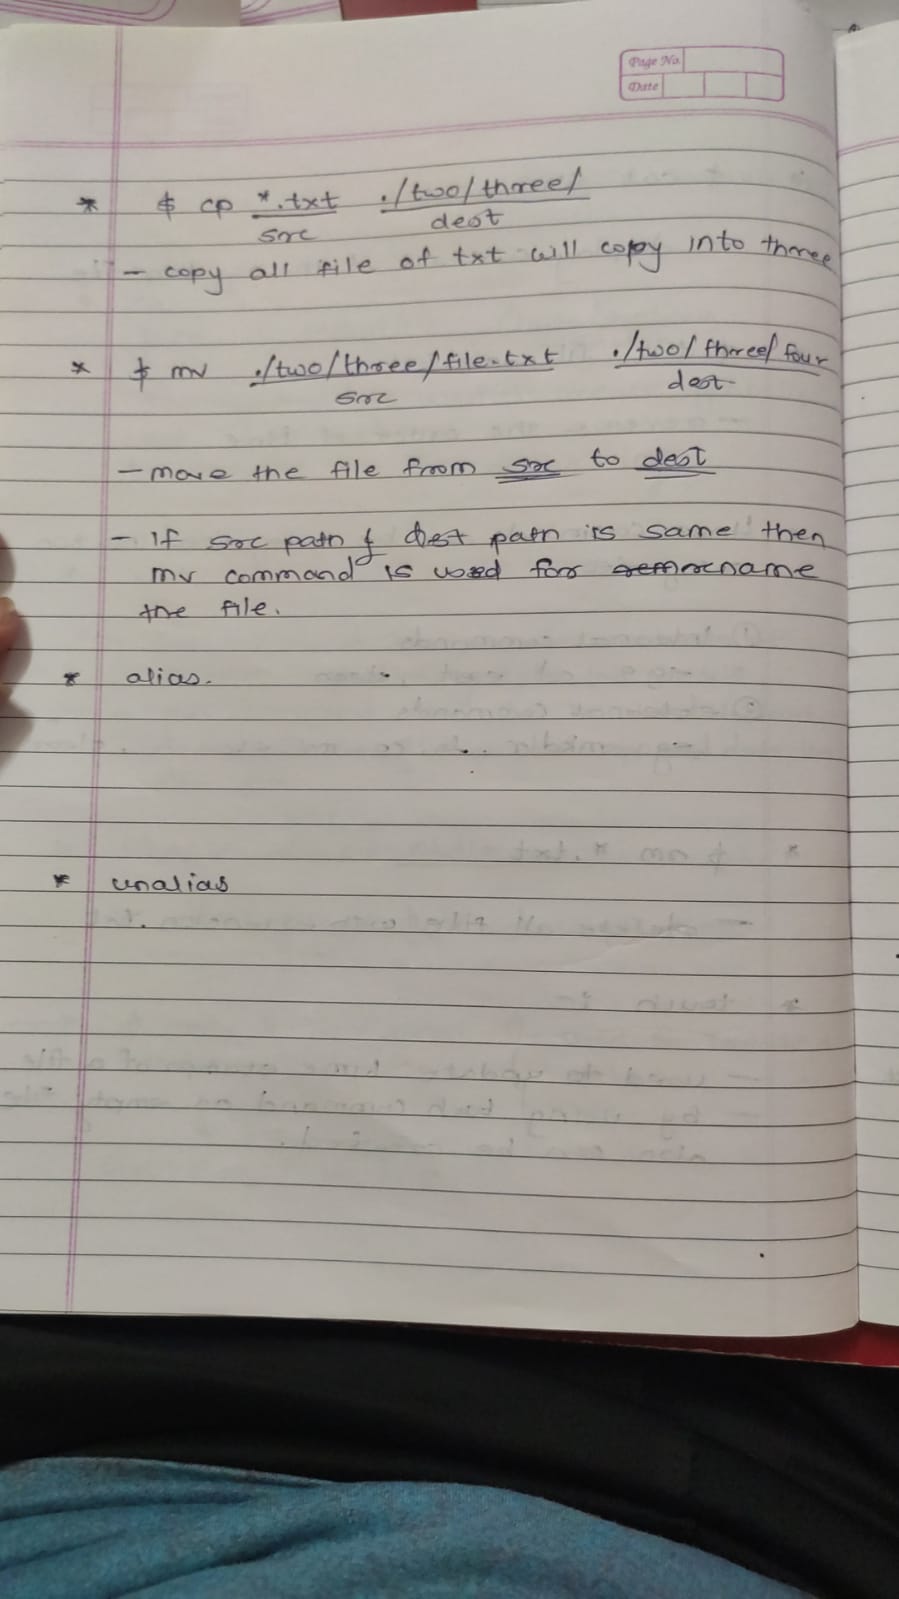 Page No.
Date
* $ cp *.txt ./two/three/
src dest
- copy all file of txt will copy into three
* $ mv ./two/three/file.txt ./two/three/four
src dest
- move the file from src to dest
- If src path & dest path is same then
mv command is used for rename
the file.
* alias.
* unalias